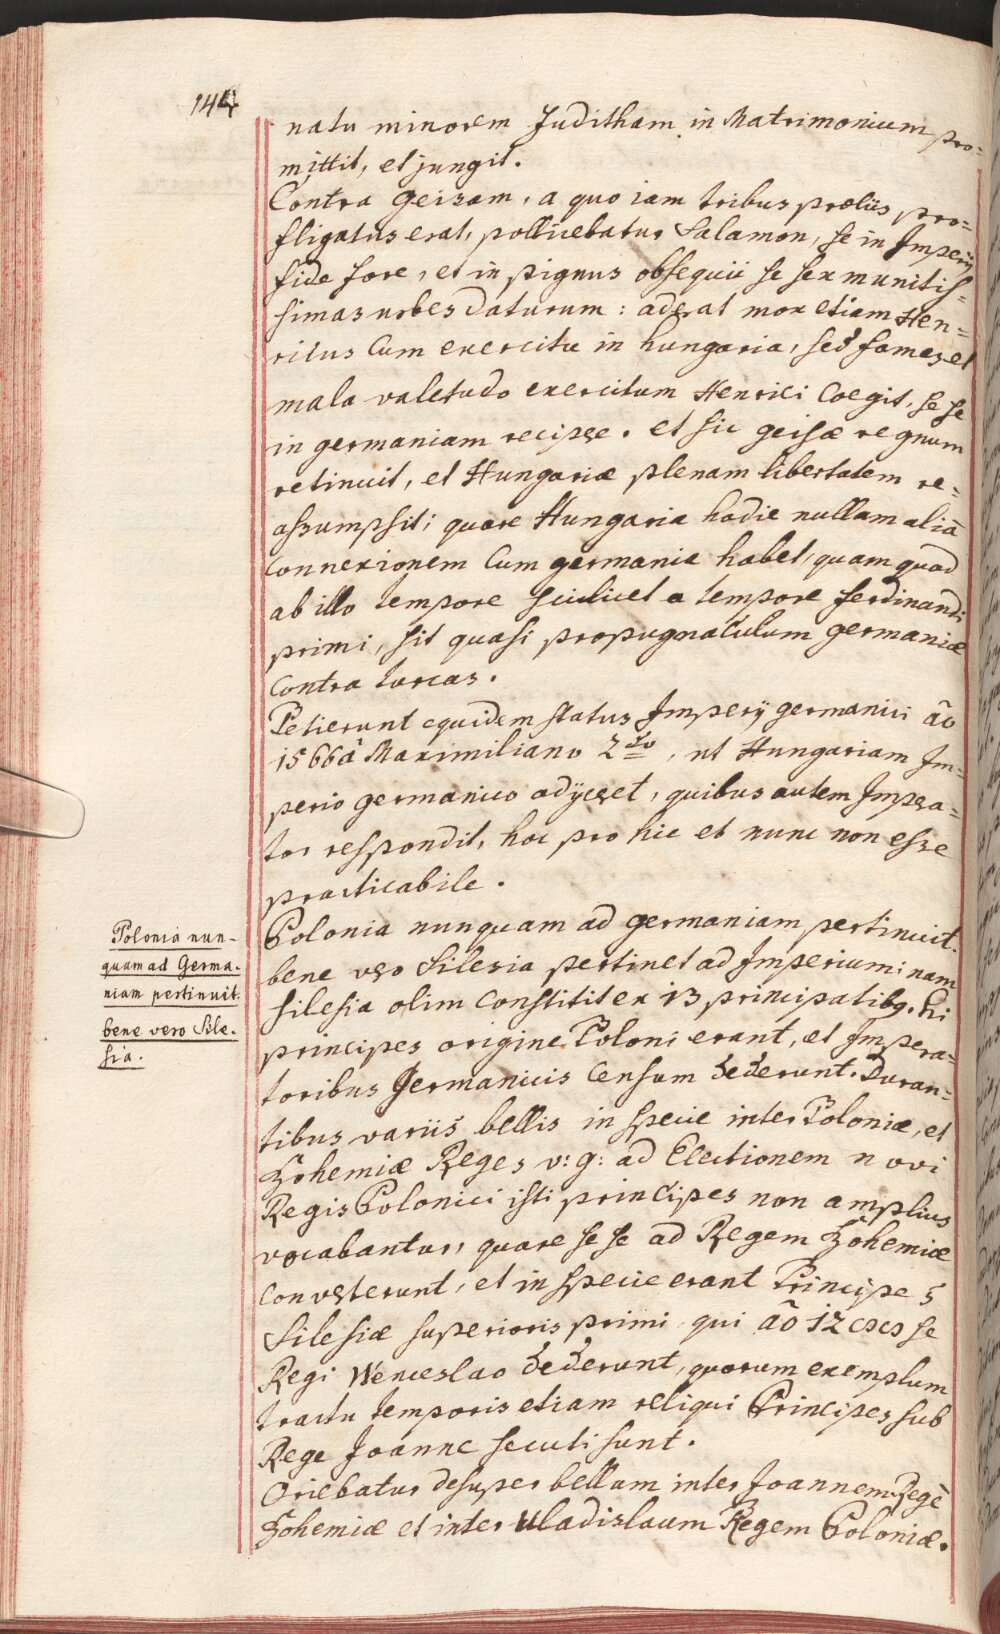 144
natu minorem Juditham in Matrimonium pro=
mittit, et jungit.
Contra geisam, a quo iam tribus prœliis pro=
fligatus erat, pollicebatur Salamon, se in Imperij
fide fore, et in pignus obsequii se sex munitis=
simas urbes daturum: aderat mox etiam Hen=
ricus Cum exercitu in hungaria, sed fames et
mala valetudo exercitum Henrici Coegit, se se
in germaniam recipere. et sic geisæ regnum
retinuit, et Hungariæ plenam libertatem re=
assumpsit; quare Hungaria hodie nullam aliā
Connexionem Cum germania habet, quam quod
ab illo tempore scilicet a tempore ferdinandi
primi, sit quasi propugnaculum germaniæ
Contra turcas.
Petierunt equidem status Imperij germanici āo
1566 â Maximiliano 2do, ut Hungariam Im=
perio germanico adijceret, quibus autem Impera=
tor respondit, hoc pro hic et nunc non esse
practicabile.
Polonia nunquam ad germaniam pertinuit.
bene vero Silesia pertinet ad Imperium; nam
silesia olim Constitit ex 13 principatibq. Hi
principes origine Poloni erant, et Impera=
toribus Germanicis Censum dederunt. Duran=
tibus variis bellis in specie inter Poloniæ, et
Bohemiæ Reges v: g: ad Electionem novi
Regis Polonici isti principes non amplius
vocabantur, quare se se ad Regem Bohemiæ
Converterunt, et in specie erant Principes
Silesiæ superioris primi qui āo 12 se
Regi Wenceslao dederunt, quorum exemplum
tractu temporis etiam reliqui Principes sub
Rege Joanne secuti sunt.
Oriebatur desuper bellum inter Joannem Regē
Bohemiæ et inter Uladislaum Regem Poloniæ.
Polonia nun-
quam ad Germa-
niam pertinuit.
bene vero Sile-
sia.